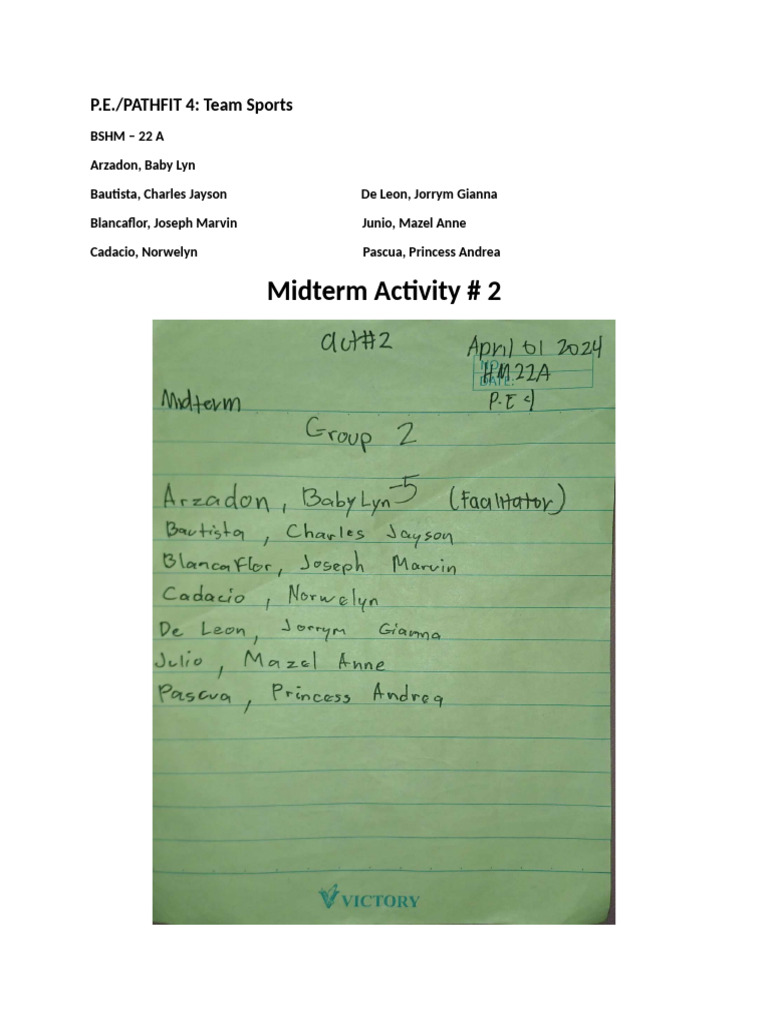 P.E./PATHFIT 4: Team Sports
BSHM – 22 A
Arzadon, Baby Lyn
Bautista, Charles Jayson De Leon, Jorrym Gianna
Blancaflor, Joseph Marvin Junio, Mazel Anne
Cadacio, Norwelyn Pascua, Princess Andrea
Midterm Activity # 2
act#2 April 01 2024
NO.:
HM22A
DATE:
Midterm P.E 4
Group 2
Arzadon, Baby Lyn -5 (Facilitator)
Bautista, Charles Jayson
Blancaflor, Joseph Marvin
Cadacio, Norwelyn
De Leon, Jorrym Gianna
Julio, Mazel Anne
Pascua, Princess Andrea
VICTORY